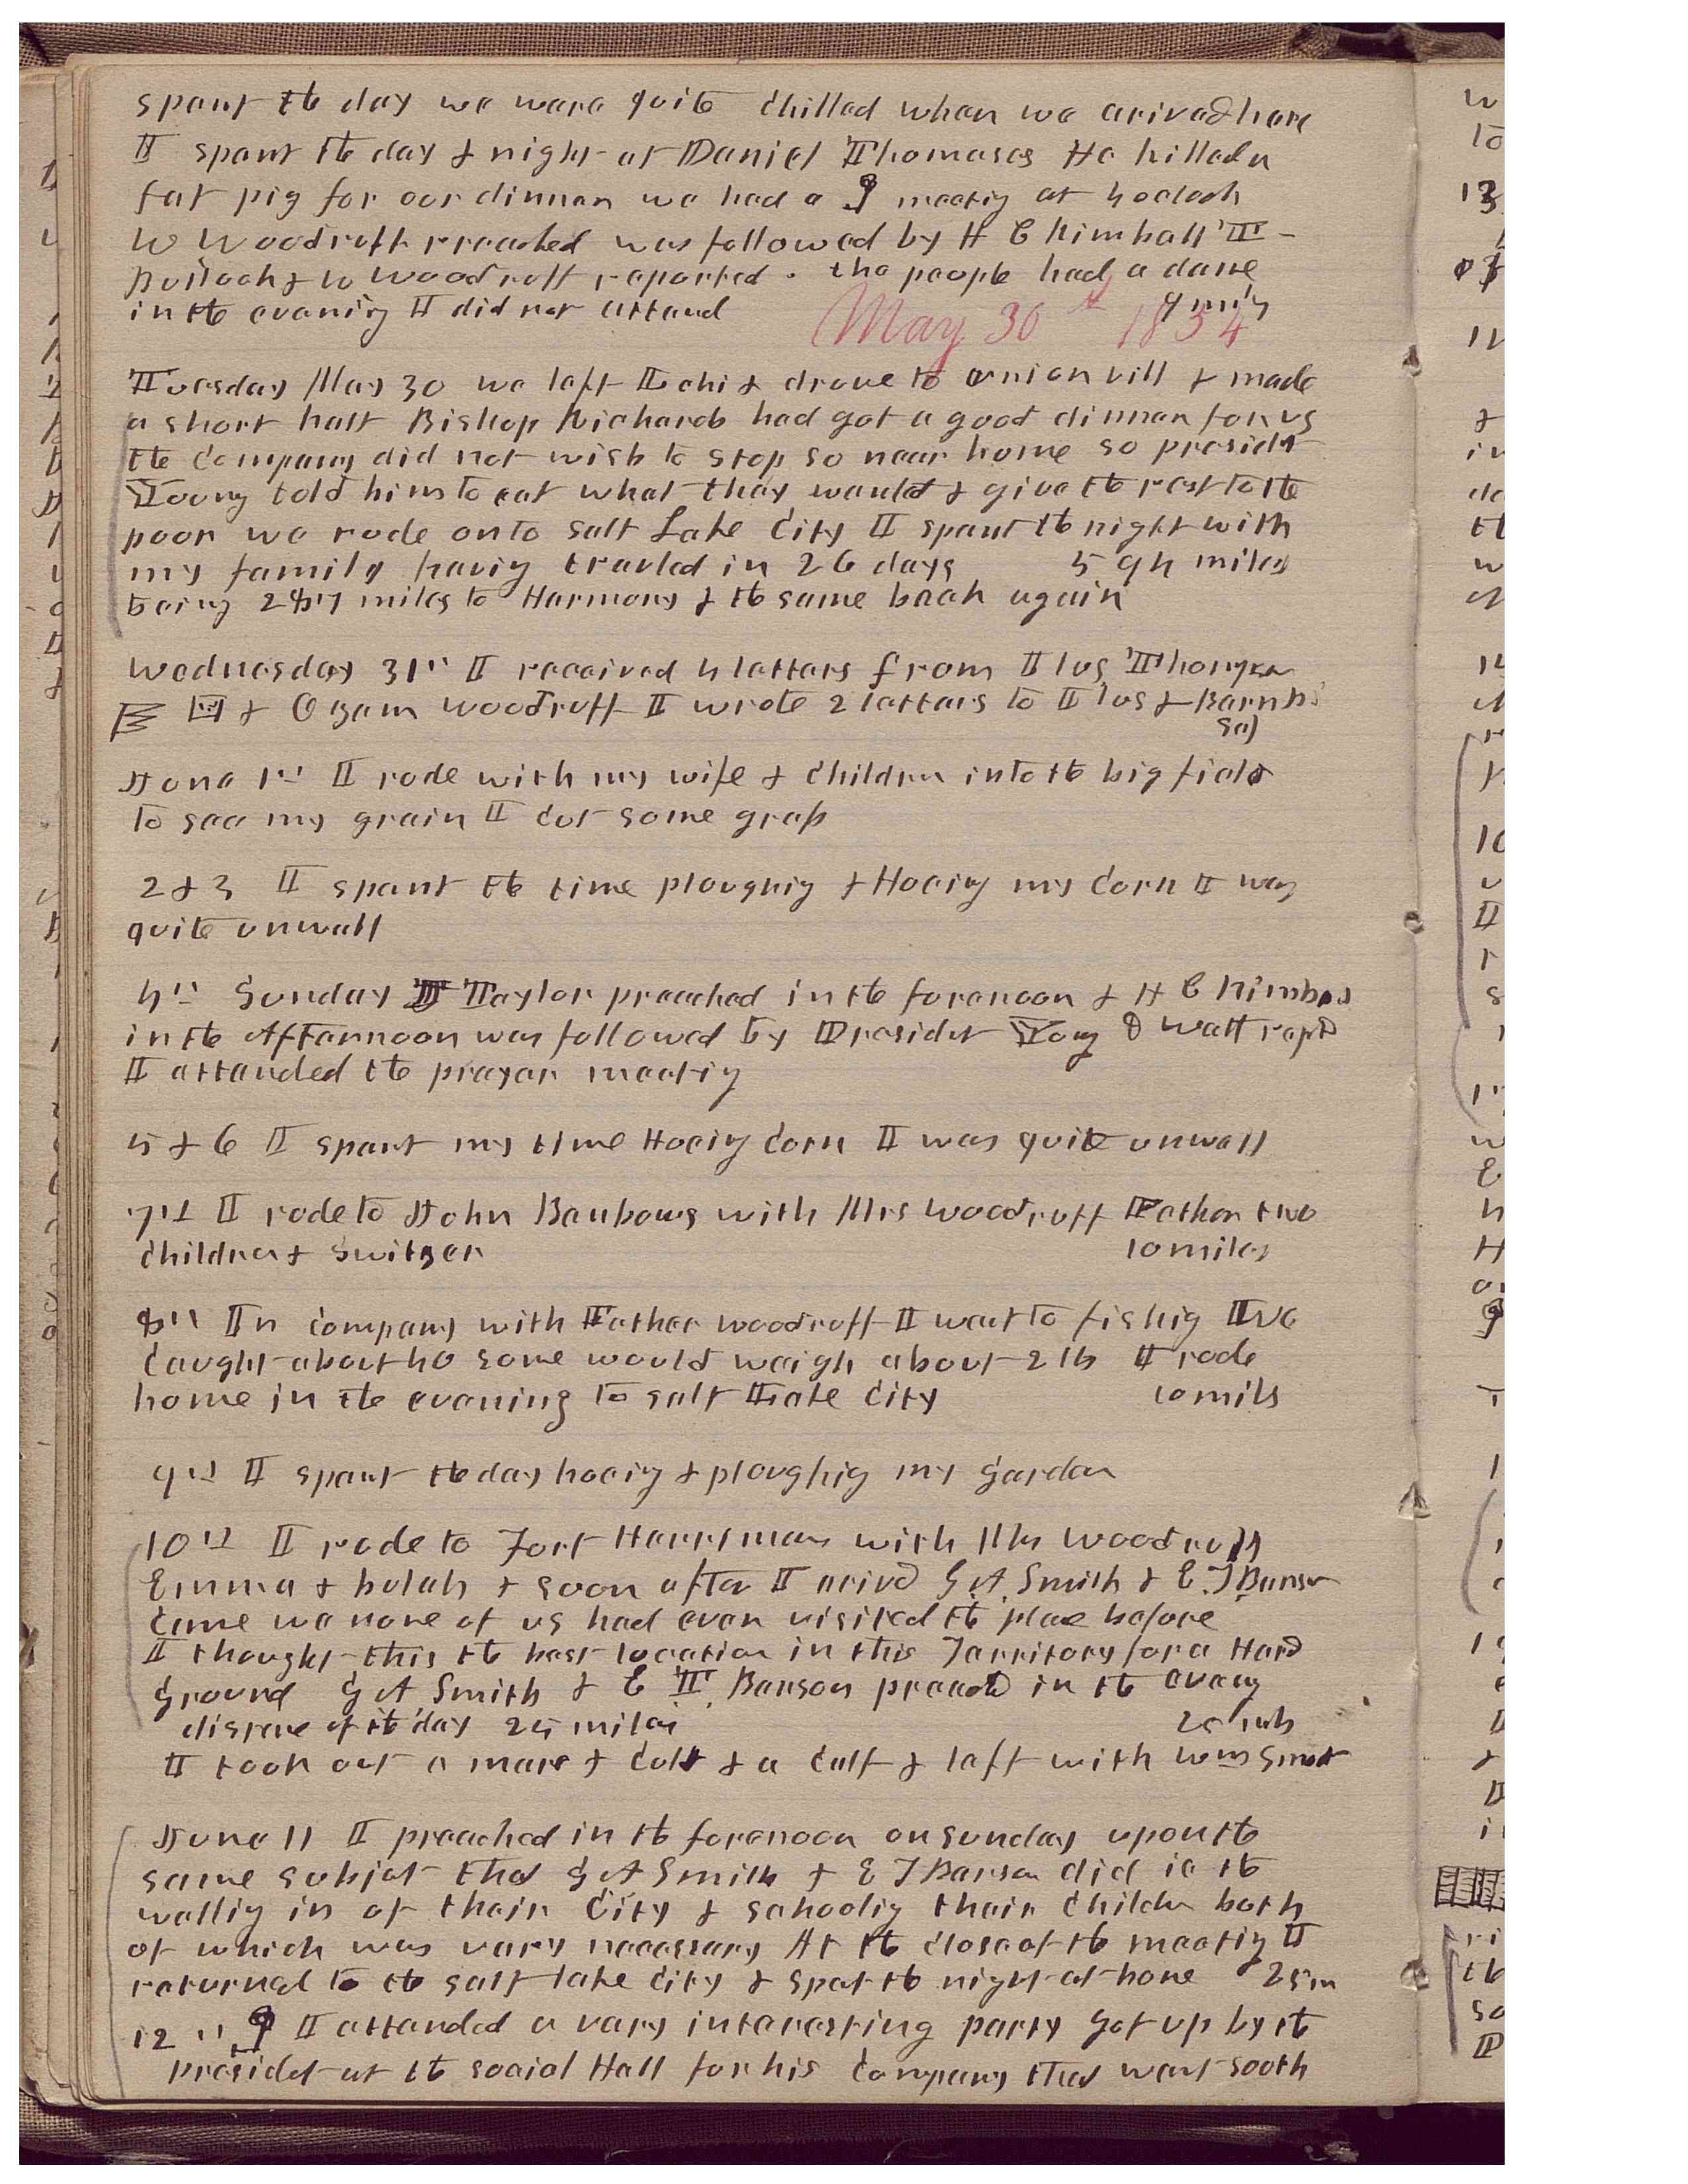 spent the day we were quite chilled when we arived here
I spent the day & night at Daniel Thomases He killed a
fat pig for our dinner we had a meetig at 4 oclock
W Woodruff preached was followed by H C Kimball T
Bullock & W Woodruff reported. the people had a dance
in the evenig I did not attend
May 30th 1854
Tuesday May 30 we left Lehi & drove to union vill & made
a short halt Bishop Richards had got a good dinner for us
the Company did not wish to stop so near home so presidt
Young told him to eat what they wanted & give the rest to the
poor we rode on to Salt Lake City I spent the night with
my family havig traveled in 26 days 594 miles
being 287 miles to Harmony & the same back again
Wednesday 31" I received 4 letters from Ilus
& Ozem Woodruff I wrote 2 letters to Ilus &
June 1" I rode with my wife & children into the big field
to see my grain I cut some grass
2 & 3 I spent the time ploughig & Hoeing my Corn I was
quite unwell
4" Sunday J Taylor preached in the forenoon & H C Kimball
in the Afternoon was followed by Presidet Young G Watt reptd
I attended the prayer meetig
5 & 6 I spent my time Hoeig Corn I was quite unwell
7th I rode to John Benbows with Mrs Woodruff Father two
children & Switzer 10 miles
8" In company with Father Woodruff I went to fishig We
caught about 40 some would weigh about 2 lb I rode
home in the evening to Salt Lake City 10 mils
9th I spent the day hoeig & ploughig my Garden
10th I rode to Fort Harriman with Mrs Woodruff
Emma & bulah & soon after I arived G. A. Smith & E. T Benson
came we none of us had ever visited the place before
I thought this the best location in this Territory for a Herd
Ground G A Smith & E T. Benson preached in the eveng
distance of the day 25 miles 25 mls
I took out a mare & colt & a calf & left with Wm
June 11 I preached in the forenoon on Sunday upon the
same subjet that G A Smith & E T Benson did ie the
wallig in of their City & schoolig their Childen both
of which was very necessary At the close of the meetig I
returned to the Salt lake City & spet the night at home 25 m
12" I attended a very interesting party got up by the
presidet at the social Hall for his company that went South